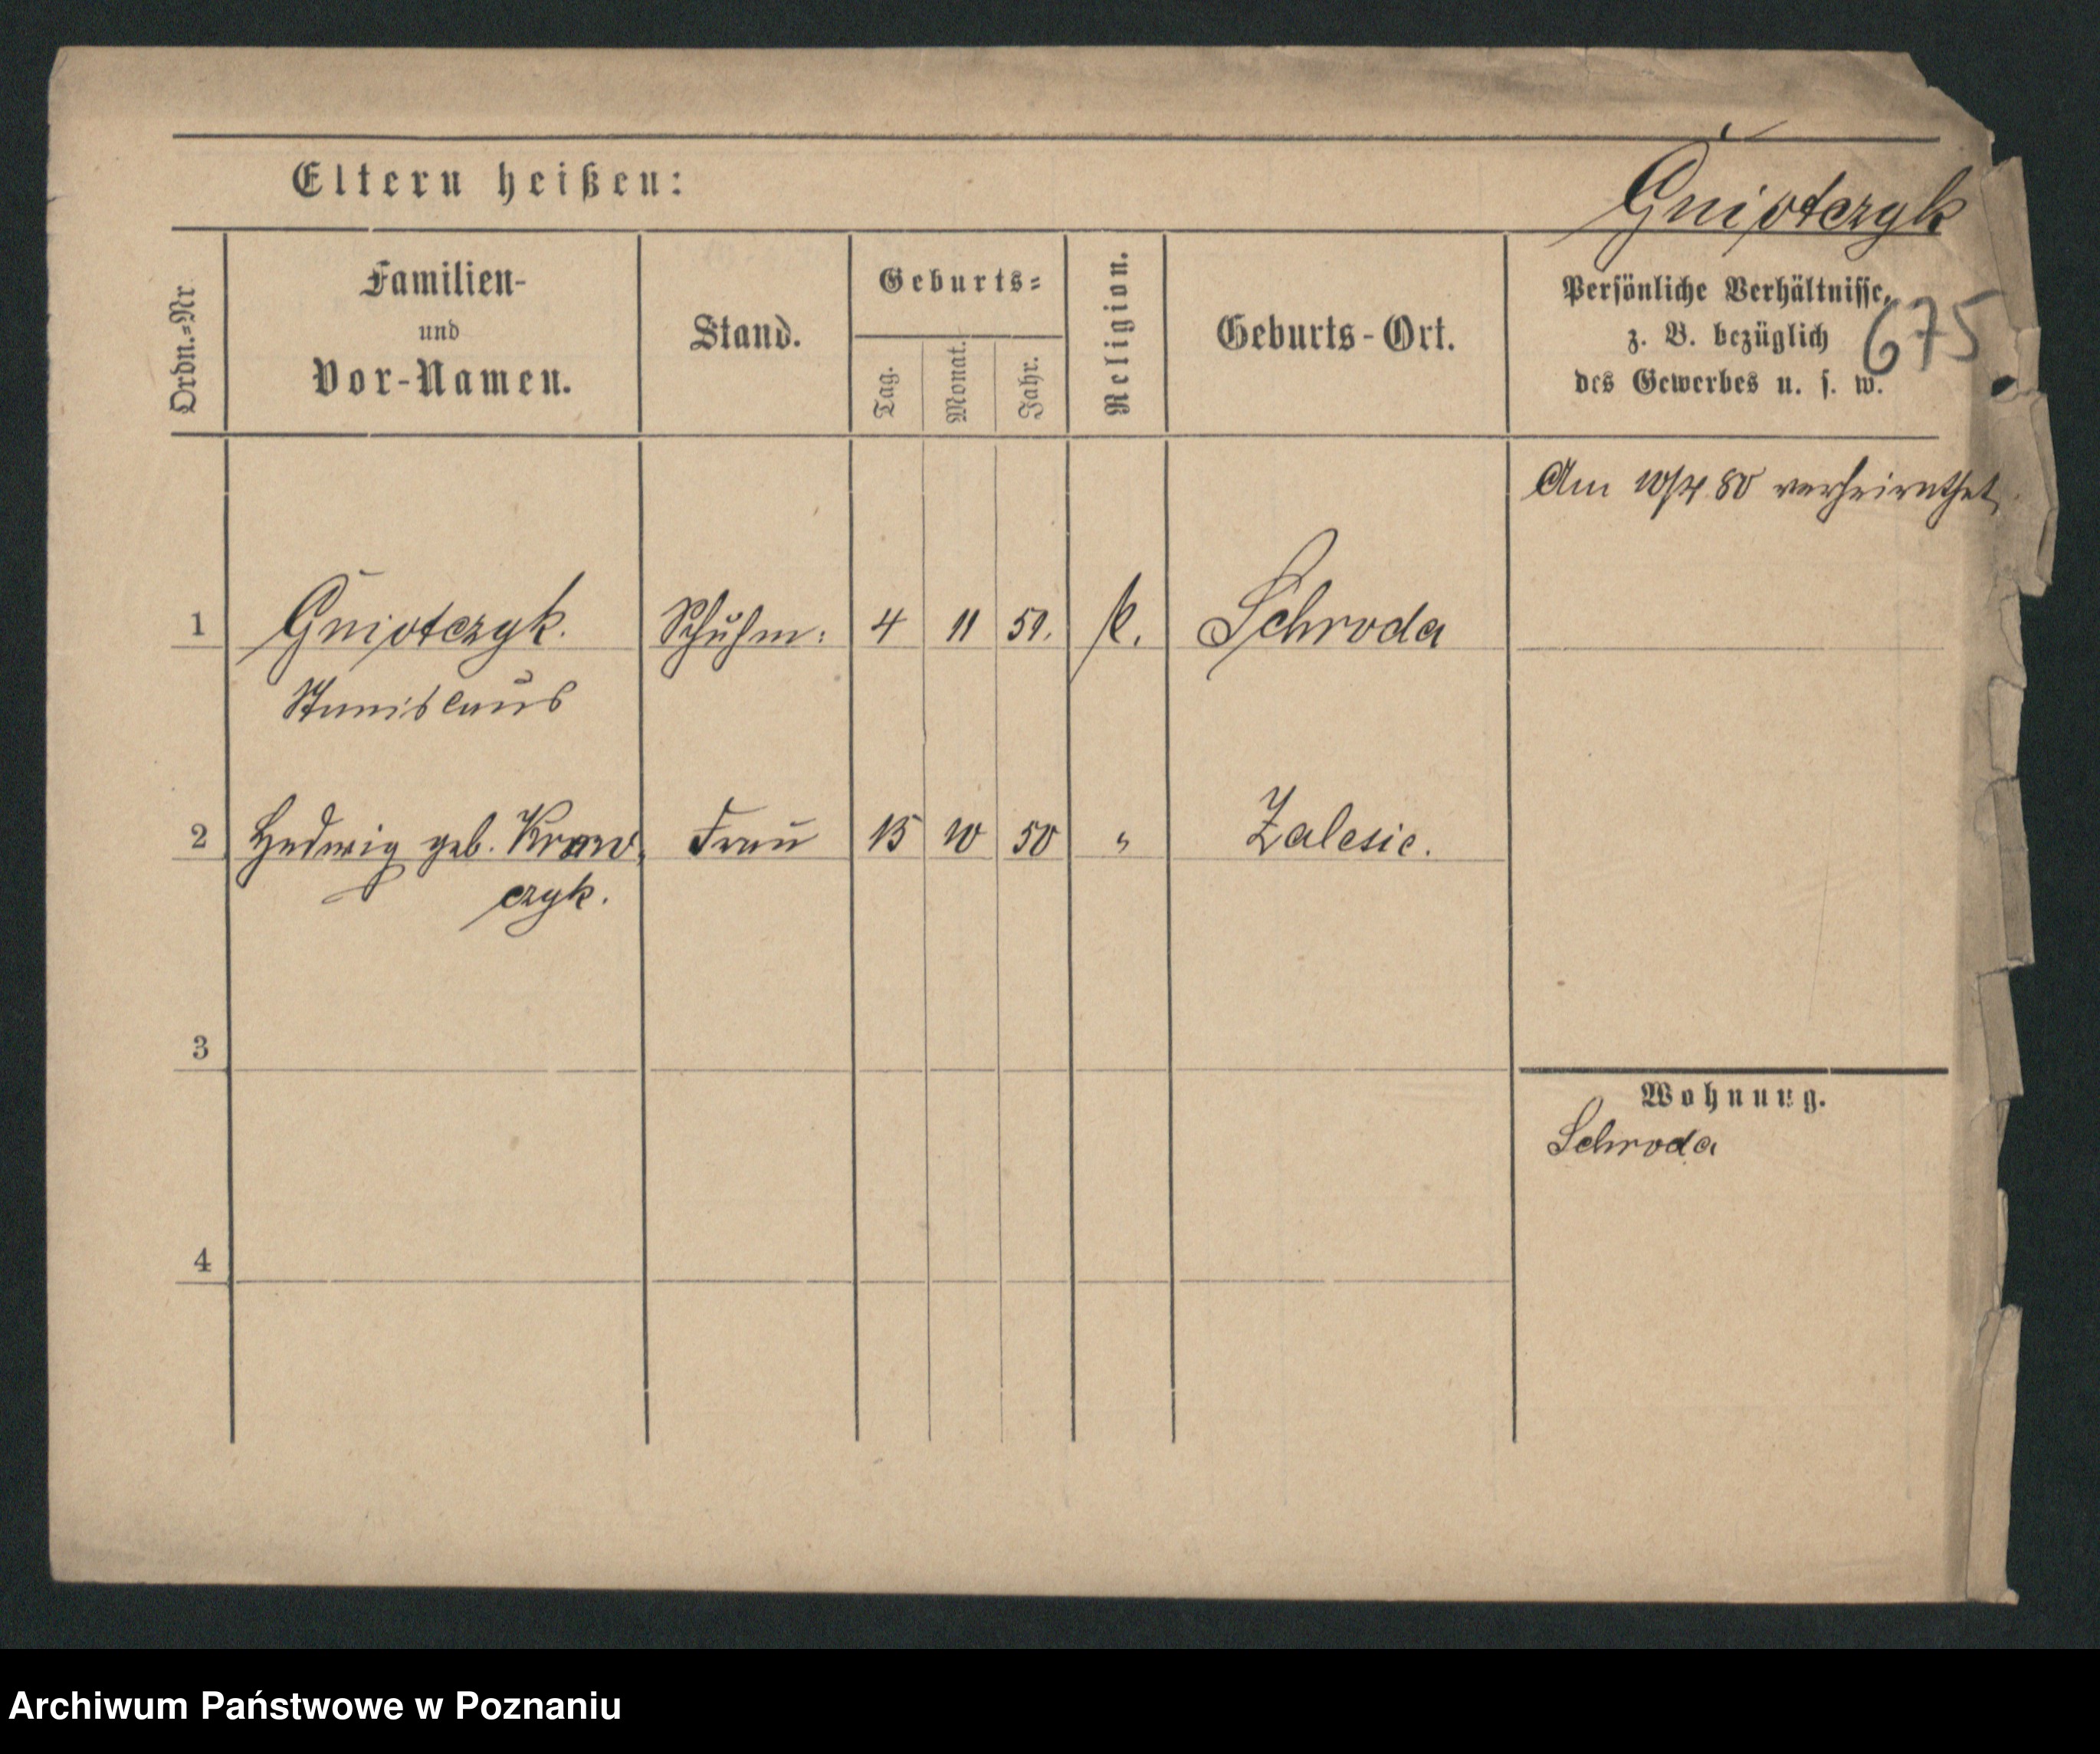 Eltern heißen:
Gniotczyk
Ordn.=Nr
Familien-
und
Vor-Namen.
Stand.
Geburts=
Tag.
Monat.
Jahr.
Religion.
Geburts-Ort.
Persönliche Verhältnisse,
z. B. bezüglich
des Gewerbes u. s. w.
675
Am 10/4 80 verheirathet
1 Gniotczyk. Schuhm: 4 11 51. k. Schroda
Stanislaus
2 Hedwig geb. Kraw Frau 15 10 50 " Zalesie.
czyk.
3
Wohnung.
Schroda
4
Archiwum Państwowe w Poznaniu